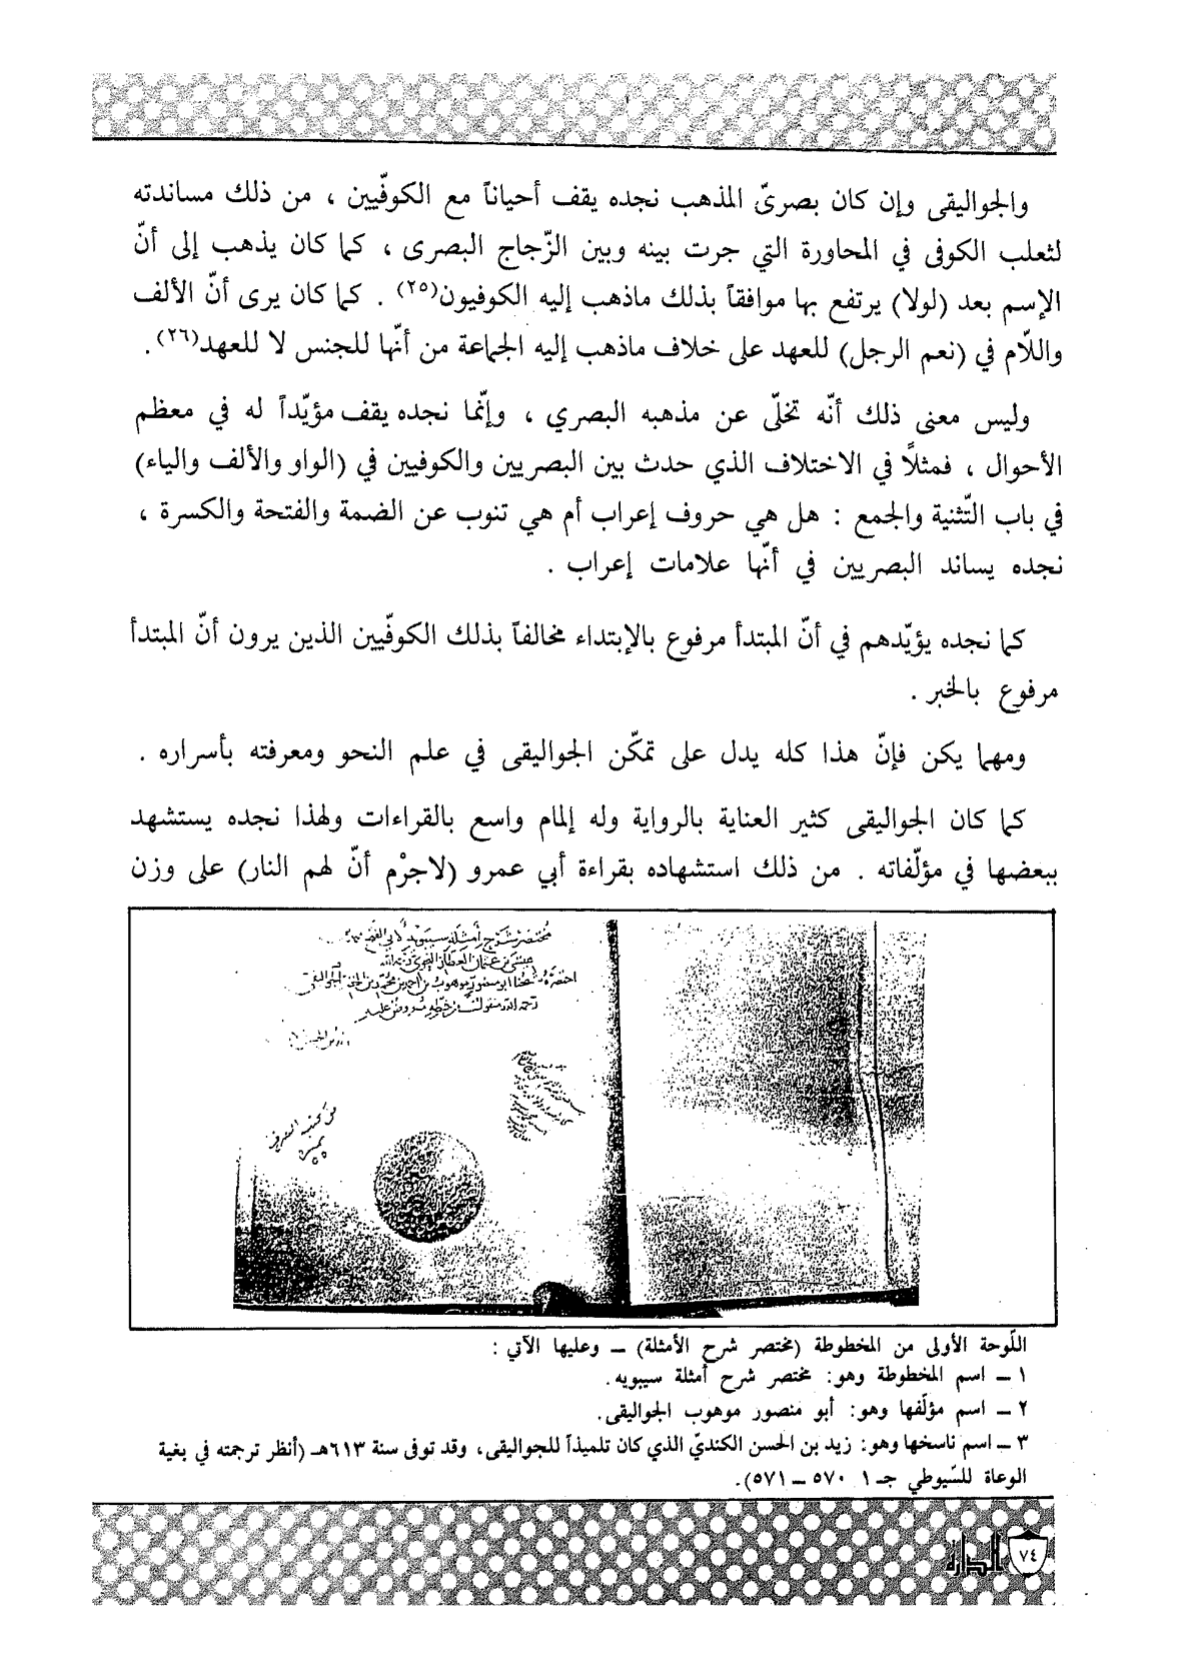 والجواليقى وإن كان بصرىّ المذهب نجده يقف أحياناً مع الكوفّيين ، من ذلك مساندته
لثعلب الكوفى في المحاورة التي جرت بينه وبين الزّجاج البصرى ، كما كان يذهب إلى أنّ
الإسم بعد (لولا) يرتفع بها موافقاً بذلك ماذهب إليه الكوفيون(٢٥) . كما كان يرى أنّ الألف
واللّام في (نعم الرجل) للعهد على خلاف ماذهب إليه الجماعة من أنّها للجنس لا للعهد(٢٦) .
وليس معنى ذلك أنّه تخلّى عن مذهبه البصري ، وإنّما نجده يقف مؤيّداً له في معظم
الأحوال ، فمثلاً في الاختلاف الذي حدث بين البصريين والكوفيين في (الواو والألف والياء)
في باب التّثنية والجمع : هل هي حروف إعراب أم هي تنوب عن الضمة والفتحة والكسرة ،
نجده يساند البصريين في أنّها علامات إعراب .
كما نجده يؤيّدهم في أنّ المبتدأ مرفوع بالإبتداء مخالفاً بذلك الكوفّيين الذين يرون أنّ المبتدأ
مرفوع بالخبر .
ومهما يكن فإنّ هذا كله يدل على تمكّن الجواليقى في علم النحو ومعرفته بأسراره .
كما كان الجواليقى كثير العناية بالرواية وله إلمام واسع بالقراءات ولهذا نجده يستشهد
ببعضها في مؤلّفاته . من ذلك استشهاده بقراءة أبي عمرو (لاجرْم أنّ لهم النار) على وزن
مختصر شرح أمثلة سيبويه
اللّوحة الأولى من المخطوطة (مختصر شرح الأمثلة) ــ وعليها الآتي :
١ ــ اسم المخطوطة وهو: مختصر شرح أمثلة سيبويه.
٢ ــ اسم مؤلّفها وهو: أبو منصور موهوب الجواليقى.
٣ ــ اسم ناسخها وهو: زيد بن الحسن الكنديّ الذي كان تلميذاً للجواليقى، وقد توفى سنة ٦١٣هـ (أنظر ترجمته في بغية
الوعاة للسّيوطي جـ ١ ٥٧٠ ــ ٥٧١).
الدارة ٧٤